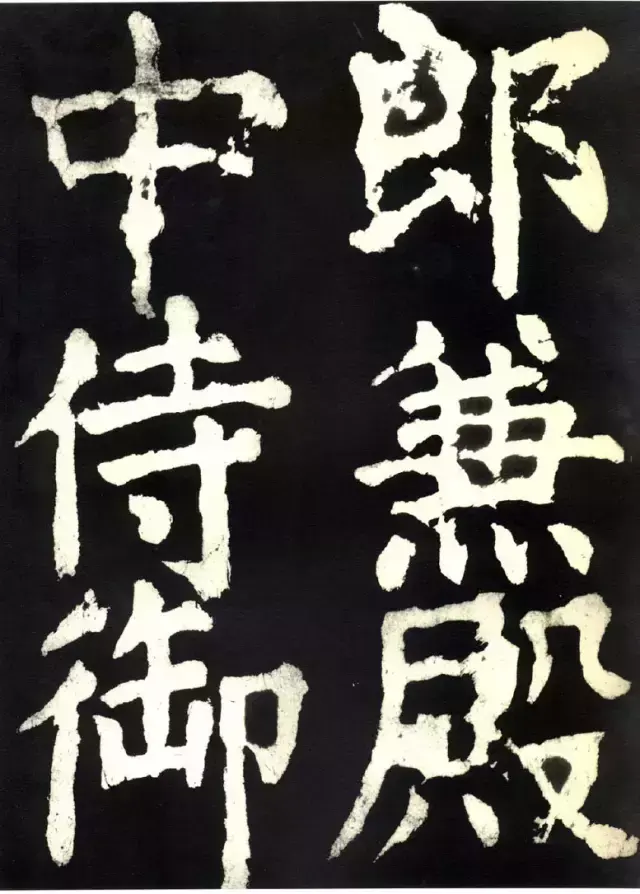 郎兼殿
中侍御